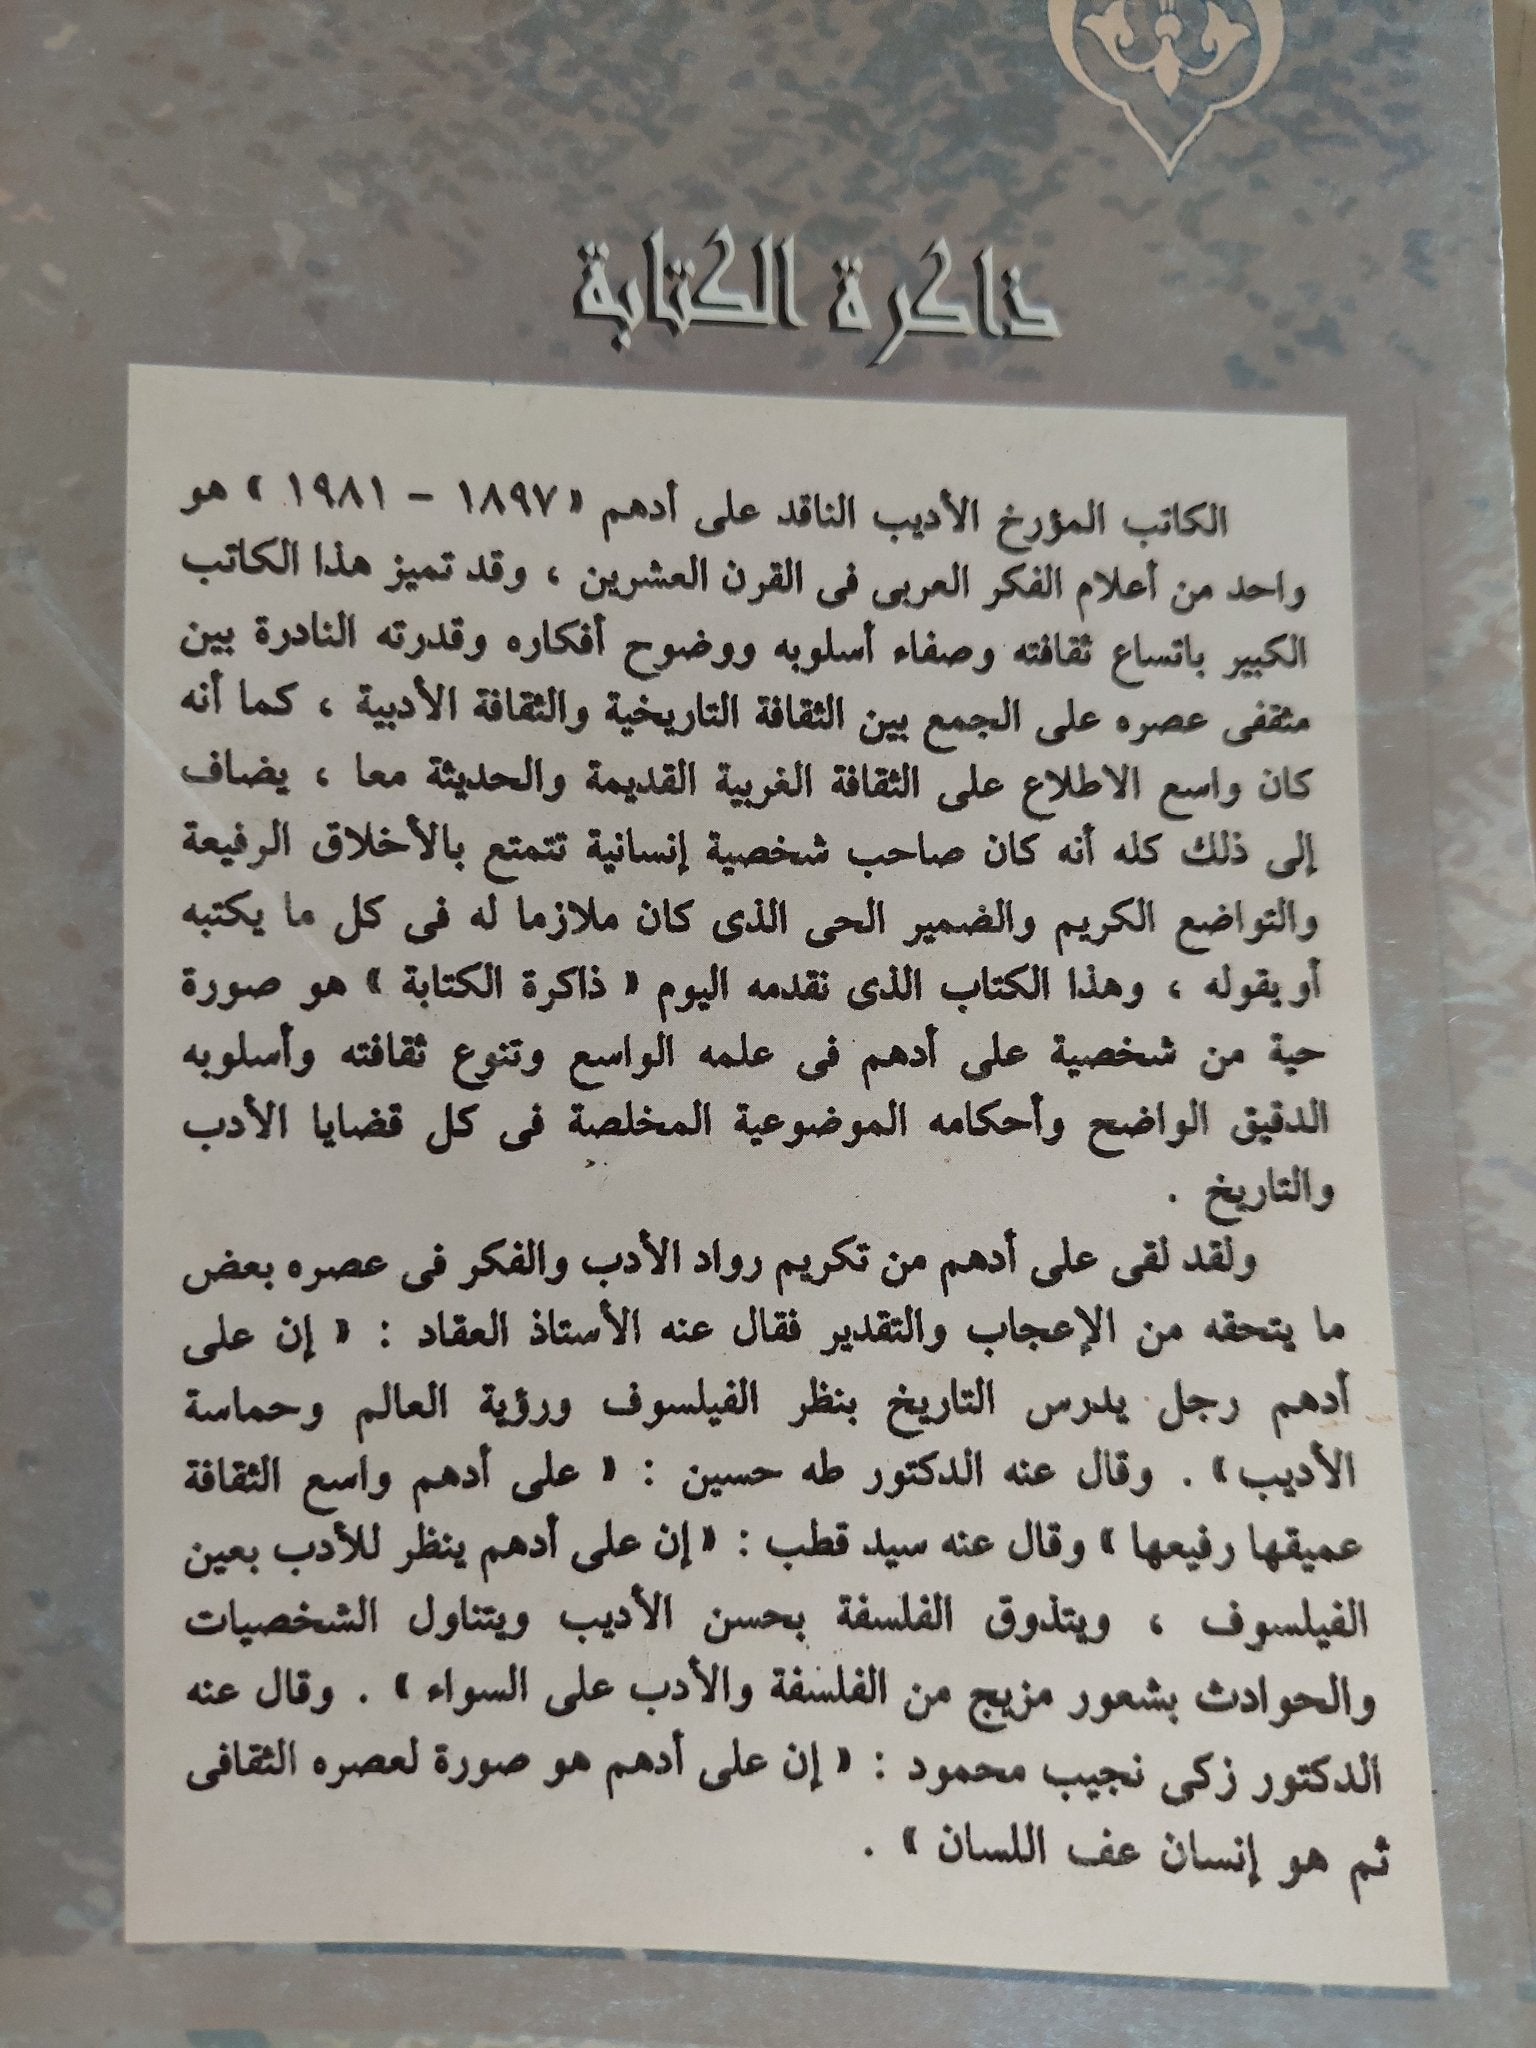 ذاكرة الكتابة
الكاتب المؤرخ الأديب الناقد على أدهم « ١٨٩٧ – ١٩٨١ » هو
واحد من أعلام الفكر العربى فى القرن العشرين ، وقد تميز هذا الكاتب
الكبير باتساع ثقافته وصفاء أسلوبه ووضوح أفكاره وقدرته النادرة بين
مثقفى عصره على الجمع بين الثقافة التاريخية والثقافة الأدبية ، كما أنه
كان واسع الاطلاع على الثقافة الغربية القديمة والحديثة معا ، يضاف
إلى ذلك كله أنه كان صاحب شخصية إنسانية تتمتع بالأخلاق الرفيعة
والتواضع الكريم والضمير الحى الذى كان ملازما له فى كل ما يكتبه
أو يقوله ، وهذا الكتاب الذى نقدمه اليوم « ذاكرة الكتابة » هو صورة
حية من شخصية على أدهم فى علمه الواسع وتنوع ثقافته وأسلوبه
الدقيق الواضح وأحكامه الموضوعية المخلصة فى كل قضايا الأدب
والتاريخ .
ولقد لقى على أدهم من تكريم رواد الأدب والفكر فى عصره بعض
ما يتحقه من الإعجاب والتقدير فقال عنه الأستاذ العقاد : « إن على
أدهم رجل يدرس التاريخ بنظر الفيلسوف ورؤية العالم وحماسة
الأديب » . وقال عنه الدكتور طه حسين : « على أدهم واسع الثقافة
عميقها رفيعها » وقال عنه سيد قطب : « إن على أدهم ينظر للأدب بعين
الفيلسوف ، ويتذوق الفلسفة بحسن الأديب ويتناول الشخصيات
والحوادث بشعور مزيج من الفلسفة والأدب على السواء » . وقال عنه
الدكتور زكى نجيب محمود : « إن على أدهم هو صورة لعصره الثقافى
ثم هو إنسان عف اللسان » .